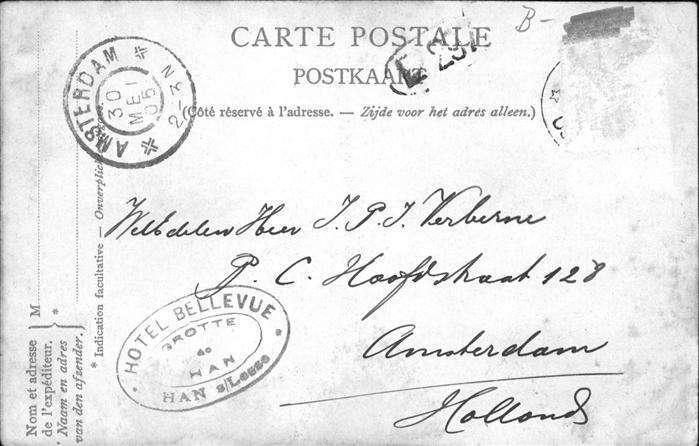 B-
CARTE POSTALE
POSTKAART
(Côté réservé à l'adresse. — Zijde voor het adres alleen.)
* AMSTERDAM *
2-3 N
30
MEI
05
WelEdelen Heer J. P. J. Verberne
P. C. Hooftstraat 128
Amsterdam
Holland
HOTEL BELLEVUE
GROTTE
de
HAN
HAN s/Lesse
* Indication facultative —
M *
Nom et adresse
de l'expéditeur.
Naam en adres
van den afzender.